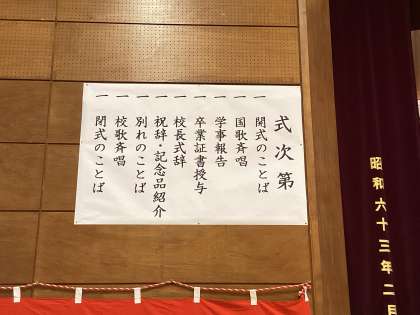 式次第
一 開式のことば
一 国歌斉唱
一 学事報告
一 卒業証書授与
一 校長式辞
一 祝辞・記念品紹介
一 別れのことば
一 校歌斉唱
一 閉式のことば
昭和六十三年二月